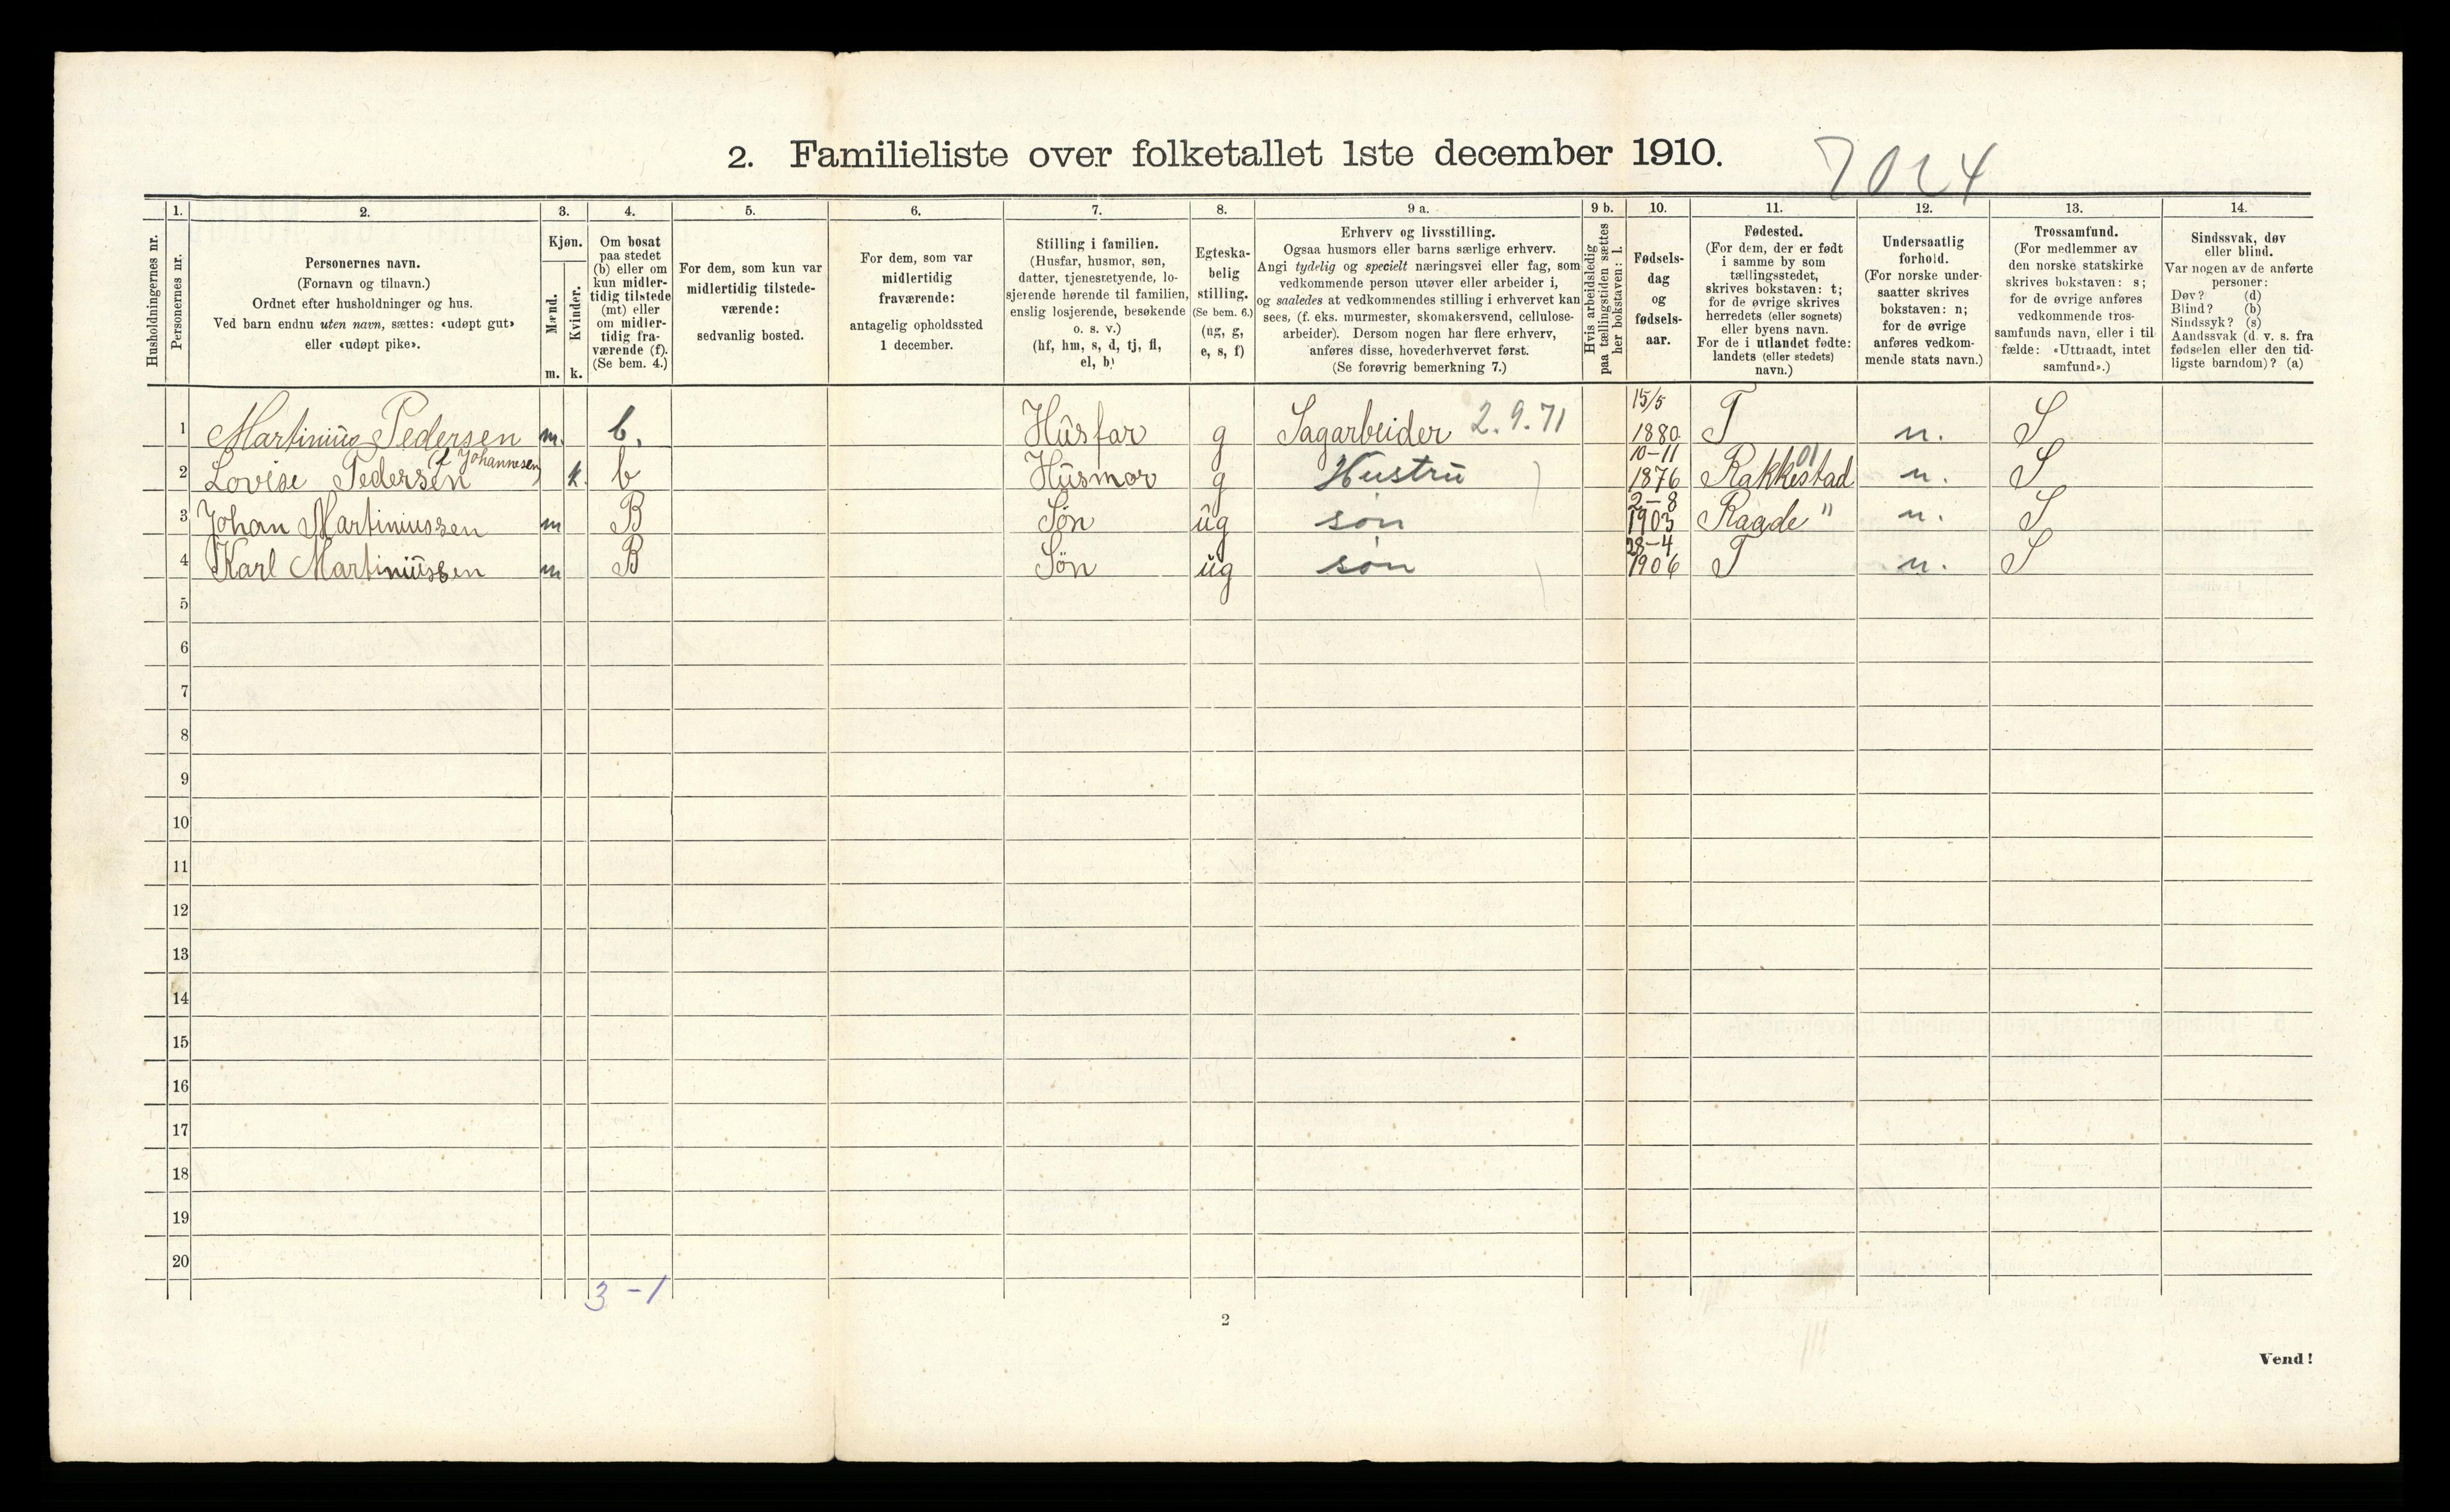 2. Familieliste over folketallet 1ste december 1910.
7024
Husholdningernes nr.
1. Personernes nr.
2. Personernes navn.
(Fornavn og tilnavn.)
Ordnet efter husholdninger og hus.
Ved barn endnu uten navn, sættes: «udøpt gut»
eller «udøpt pike».
3. Kjøn.
Mænd. m.
Kvinder. k.
4. Om bosat
paa stedet
(b) eller om
kun midler-
tidig tilstede
(mt) eller
om midler-
tidig fra-
værende (f).
(Se bem. 4.)
5. For dem, som kun var
midlertidig tilstede-
værende:
sedvanlig bosted.
6. For dem, som var
midlertidig
fraværende:
antagelig opholdssted
1 december.
7. Stilling i familien.
(Husfar, husmor, søn,
datter, tjenestetyende, lo-
sjerende hørende til familien,
enslig losjerende, besøkende
o. s. v.)
(hf, hm, s, d, tj, fl,
el, b)
8. Egteska-
belig
stilling.
(Se bem. 6.)
(ug, g,
e, s, f)
9 a. Erhverv og livsstilling.
Ogsaa husmors eller barns særlige erhverv.
Angi tydelig og specielt næringsvei eller fag, som
vedkommende person utøver eller arbeider i,
og saaledes at vedkommendes stilling i erhvervet kan
sees, (f. eks. murmester, skomakersvend, cellulose-
arbeider). Dersom nogen har flere erhverv,
anføres disse, hovederhvervet først.
(Se forøvrig bemerkning 7.)
9 b. Hvis arbeidsledig
paa tællingstiden sættes
her bokstaven: l.
10. Fødsels-
dag
og
fødsels-
aar.
11. Fødested.
(For dem, der er født
i samme by som
tællingsstedet,
skrives bokstaven: t;
for de øvrige skrives
herredets (eller sognets)
eller byens navn.
For de i utlandet fødte:
landets (eller stedets)
navn.)
12. Undersaatlig
forhold.
(For norske under-
saatter skrives
bokstaven: n;
for de øvrige
anføres vedkom-
mende stats navn.)
13. Trossamfund.
(For medlemmer av
den norske statskirke
skrives bokstaven: s;
for de øvrige anføres
vedkommende tros-
samfunds navn, eller i til
fælde: «Uttraadt, intet
samfund».)
14. Sindssvak, døv
eller blind.
Var nogen av de anførte
personer:
Døv? (d)
Blind? (b)
Sindssyk? (s)
Aandssvak (d. v. s. fra
fødselen eller den tid-
ligste barndom)? (a)
1 Martinius Pedersen m. b. Husfar g Sagarbeider 2.9.71 15/5 1880 T n. S
2 Lovise Pedersen (f Johannesen) k. b Husmor g Hustru 10-11 1876 Rakkestad 01 n. S
3 Johan Martiniussen m B Søn ug søn 2-8 1903 Raade " n. S
4 Karl Martiniussen m B Søn ug søn 28-4 1906 T n. S
5
6
7
8
9
10
11
12
13
14
15
16
17
18
19
20
3 - 1
2
Vend!